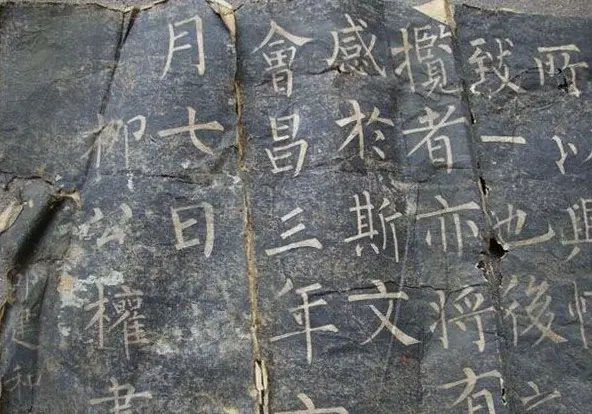 所以興
致一也後之
攬者亦將有
感於斯文
會昌三年
月七日
柳公權書
建和